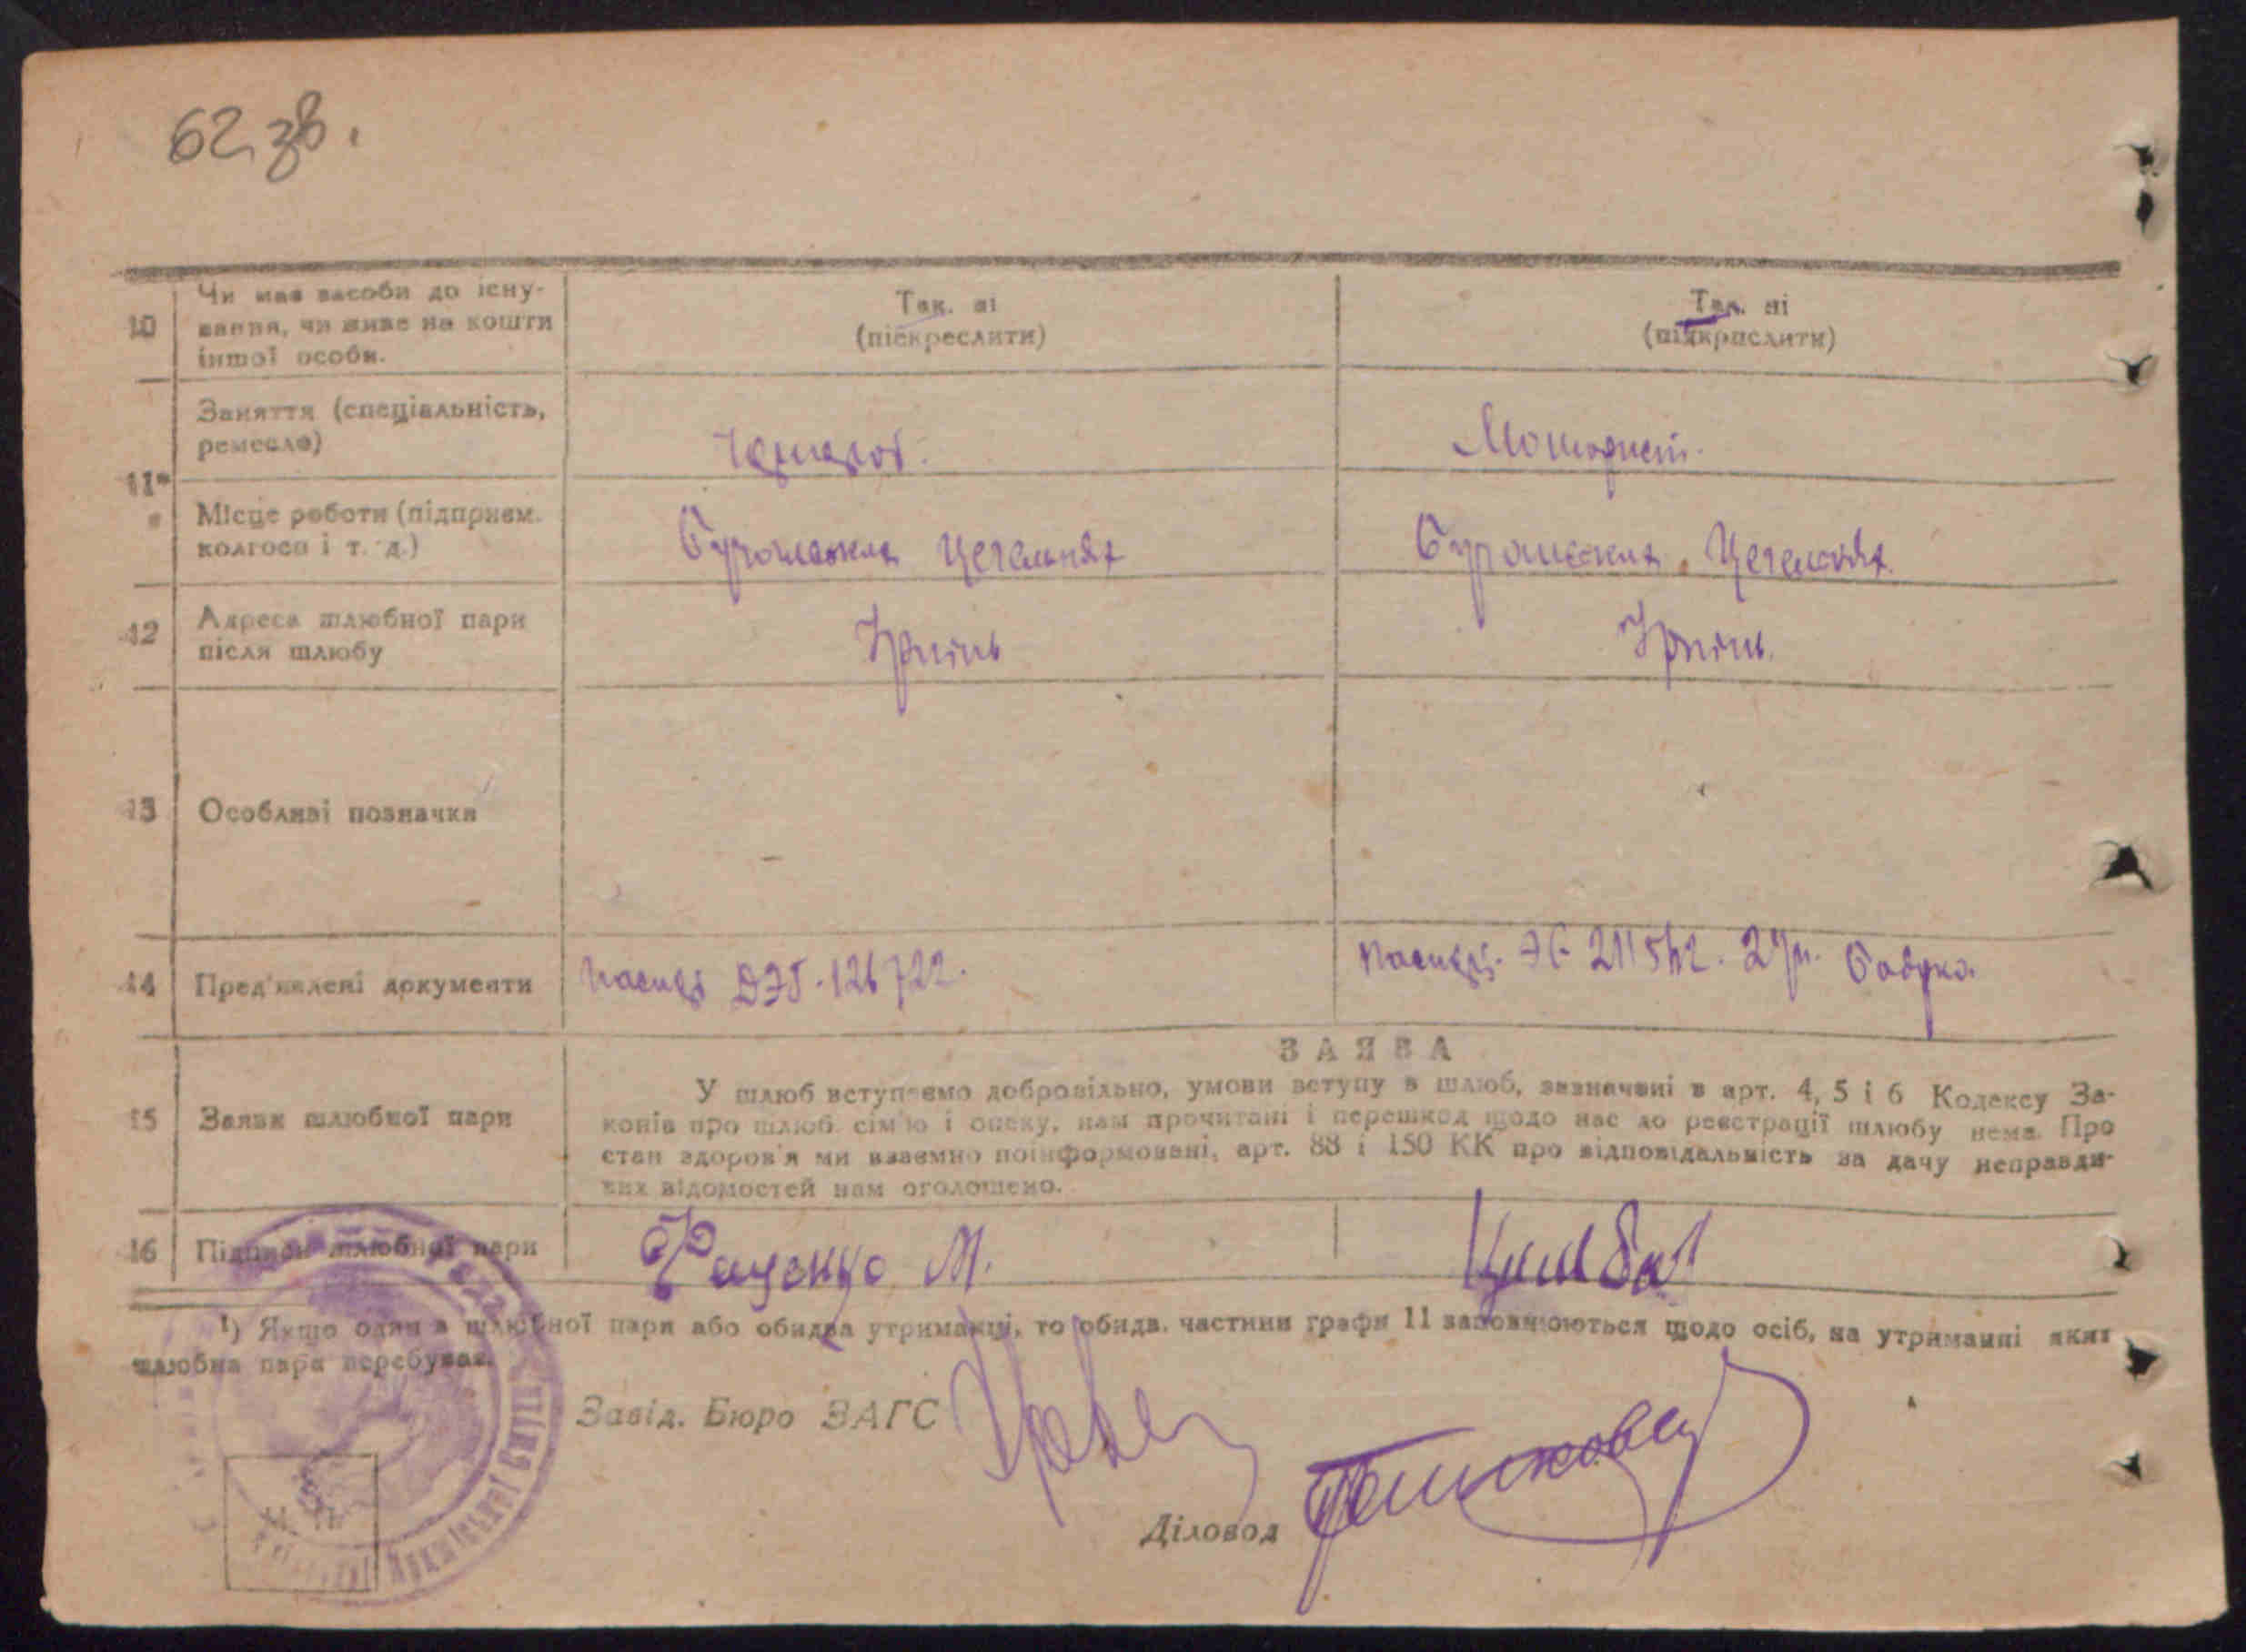 62 зв.
10
Чи має засоби до існу-
вання, чи живе на кошти
іншої особи.
Так. ні
(піскреслити)
Так. ні
(підкрислити)
11*
Заняття (спеціальність,
ремесло)
Чорнороб.
Моторист.
Місце роботи (підприєм.
колгосп і т. д.)
Бучанська Цегельня
Бучанська Цегельня
12
Адреса шлюбної пари
після шлюбу
Ірпінь
Ірпінь.
13
Особливі позначки
14
Пред'явлені документи
паспорт 126722.
паспорт.
15
Заяви шлюбної пари
ЗАЯВА
У шлюб вступаємо добровільно, умови вступу в шлюб, зазначені в арт. 4, 5 і 6 Кодексу За-
конів про шлюб. сім'ю і опеку, нам прочитані і перешкод щодо нас до реєстрації шлюбу нема. Про
стан здоров'я ми взаємно поінформовані, арт. 88 і 150 КК про відповідальність за дачу неправди-
вих відомостей нам оголошено.
16
Підписи шлюбної пари
Фаценко М.
Цимбал
1) Якщо один з шлюбної пари або обидва утриманці, то обидв. частини графи 11 заповнюються щодо осіб, на утриманні яких
шлюбна пара перебуває.
Завід. Бюро ЗАГС
Діловод
М. П.